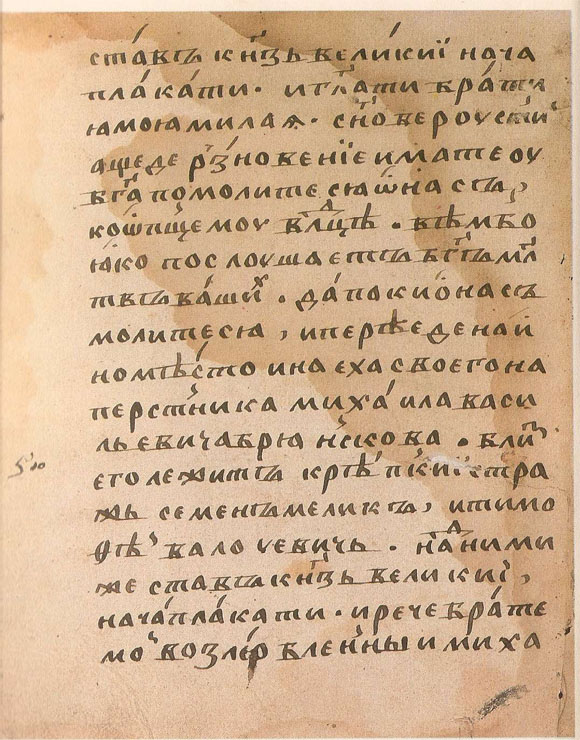 ста́въ кн҃зь вели́киї нача
пла́кати· и гл҃ати бра́тиꙗ
юмоюмилаꙗ· сн҃ове роускиї
аще де рꙁновениїе имате оу
бг҃а помолите сю ѡ насъ,
коѡ҃пщемоу влⷣцѣ · вѣмъ бо
юко послоушаетъ бг҃ъ мл҃
твъ ва́шиⷯ · да́ паки ѡ насъ
молитесю, и перѣеде на и
но мѣ́сто и наеха своего на
перстника миха́ила васи
льевича брюнскова · близ
его лежитъ крѣпкиї стра
жь семенъ меликъ, и тимо
ѳѣ валоуевичь · наⷣ ними
же ставъ кн҃зь великиї,
нача́ пла́кати · и рече бра́те
мо возлю́бленны и миха